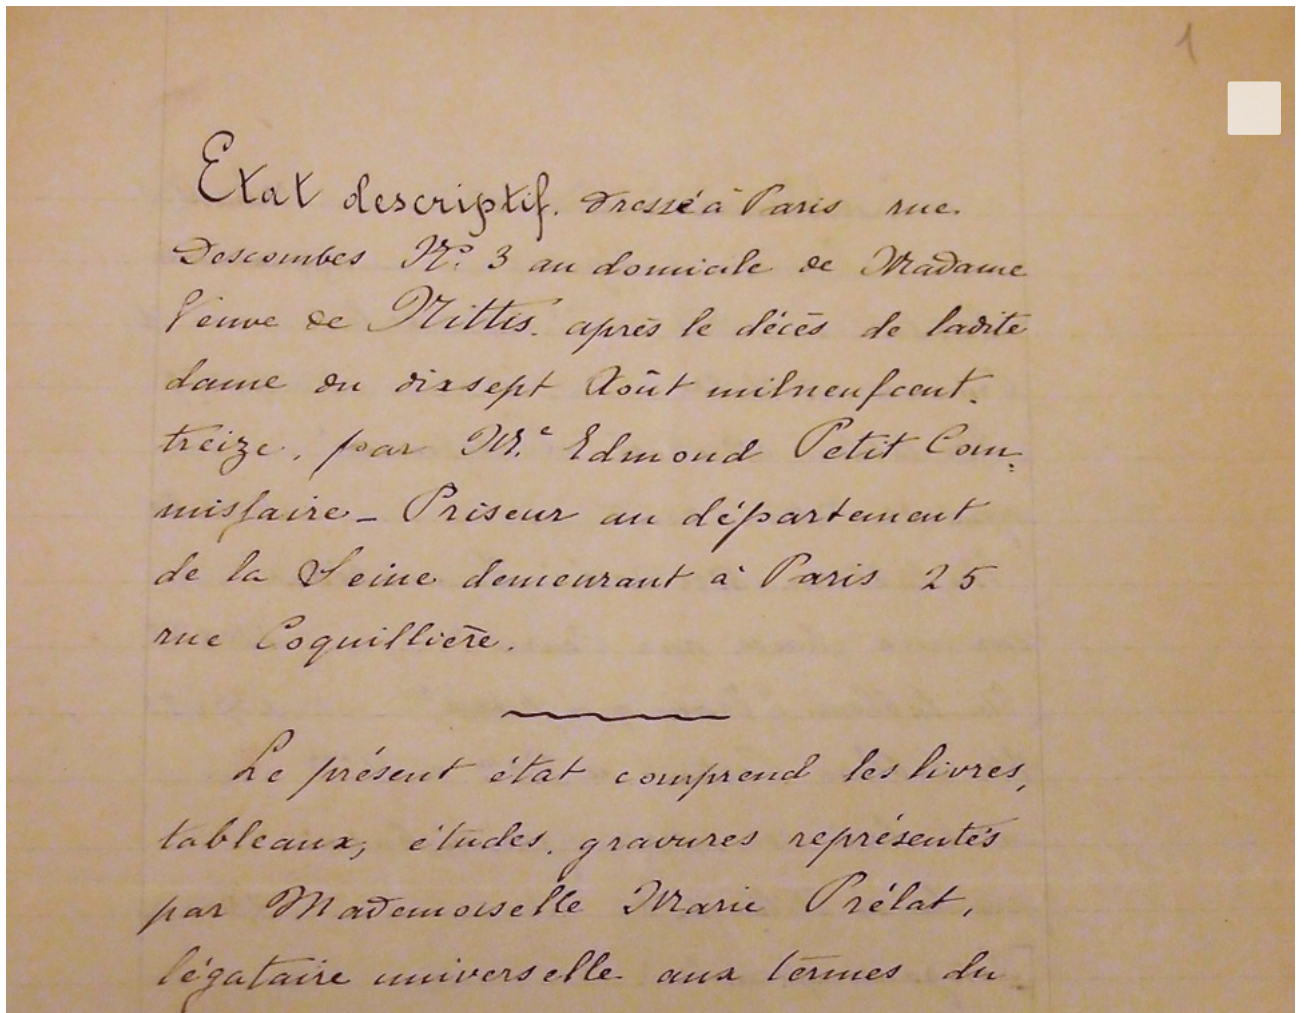 1
Etat descriptif. dressé à Paris rue
Descombes N.º 3 au domicile de Madame
Veuve de Nittis. après le décès de ladite
dame du dixsept Août milneufcent.
treize, par M.e Edmond Petit Com-
missaire - Priseur au département
de la Seine demeurant à Paris 25
rue Coquillière.
Le présent état comprend les livres,
tableaux, études, gravures représentés
par Mademoiselle Marie Prélat,
légataire universelle aux termes du